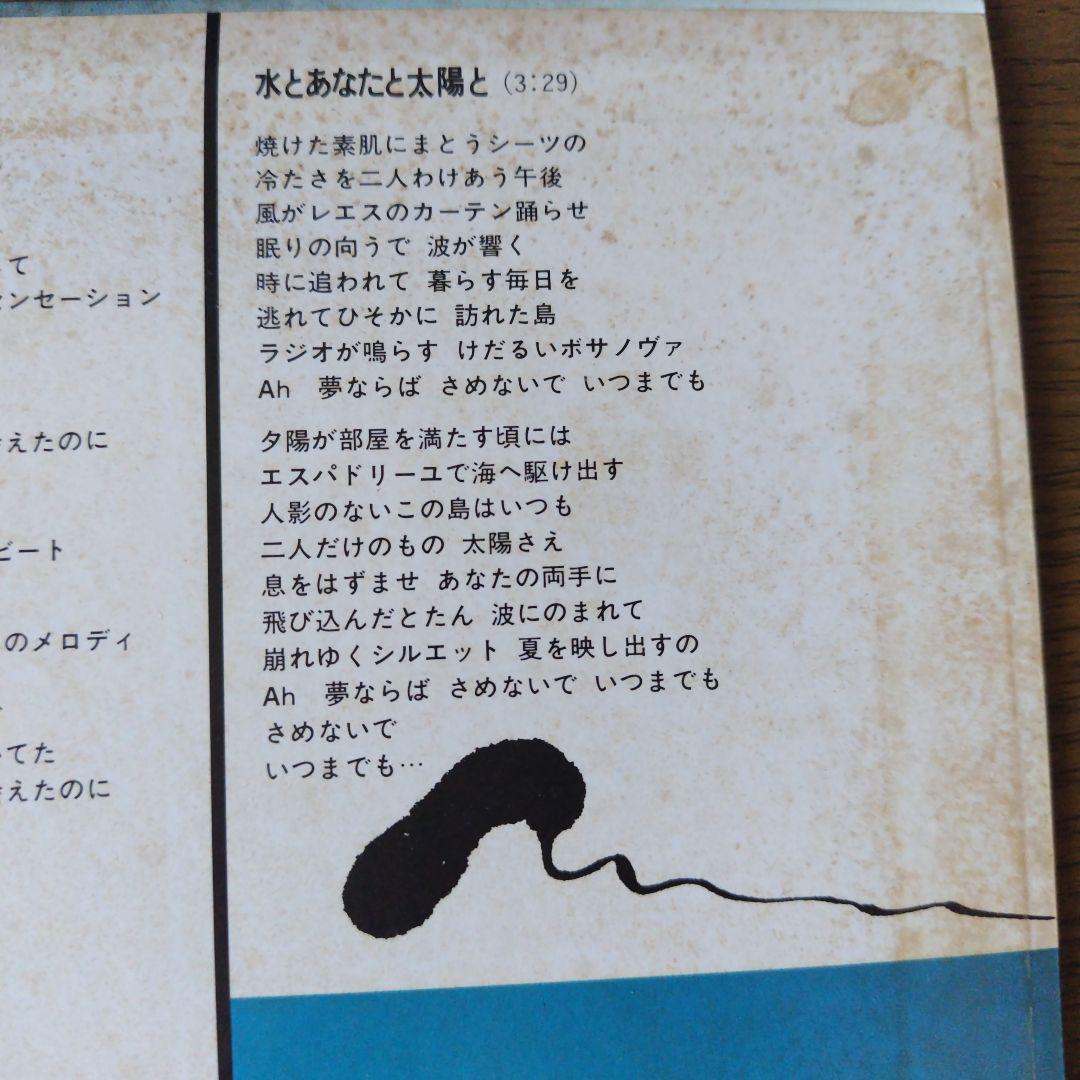 て
センセーション
えたのに
ビート
のメロディ
てた
えたのに
水とあなたと太陽と (3:29)
焼けた素肌にまとうシーツの
冷たさを二人わけあう午後
風がレエスのカーテン踊らせ
眠りの向うで 波が響く
時に追われて 暮らす毎日を
逃れてひそかに 訪れた島
ラジオが鳴らす けだるいボサノヴァ
Ah 夢ならば さめないで いつまでも
夕陽が部屋を満たす頃には
エスパドリーユで海へ駆け出す
人影のないこの島はいつも
二人だけのもの 太陽さえ
息をはずませ あなたの両手に
飛び込んだとたん 波にのまれて
崩れゆくシルエット 夏を映し出すの
Ah 夢ならば さめないで いつまでも
さめないで
いつまでも…